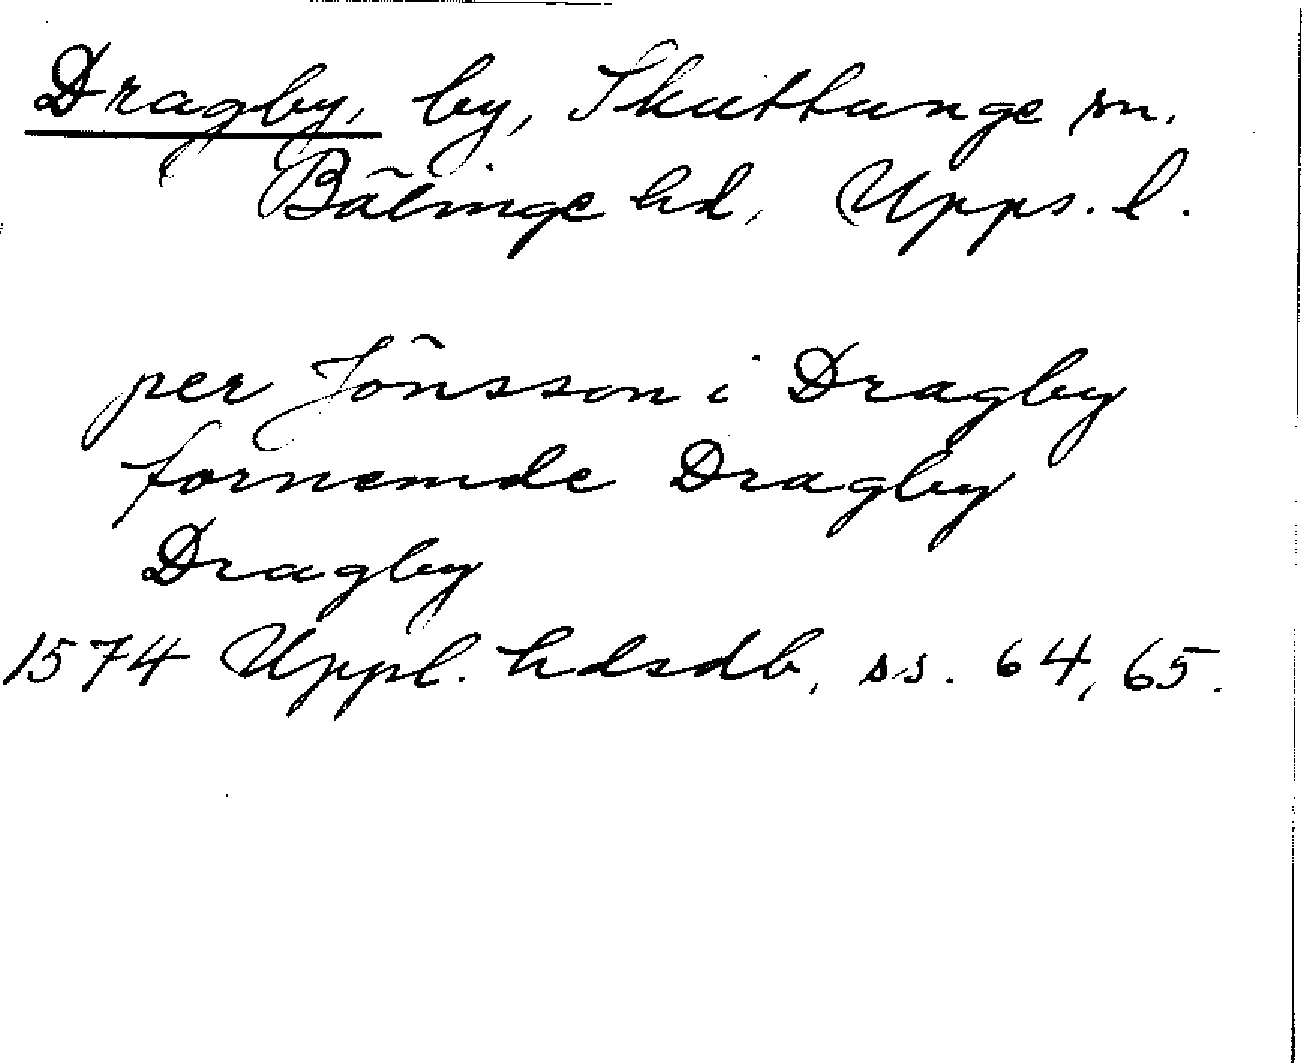 Dragby, by, Skuttunge sn.
Bälinge hd, Upps. l.
per Jönsson i Dragby
fornemde Dragby
Dragby
1574 Uppl. hdsdb, ss. 64, 65.